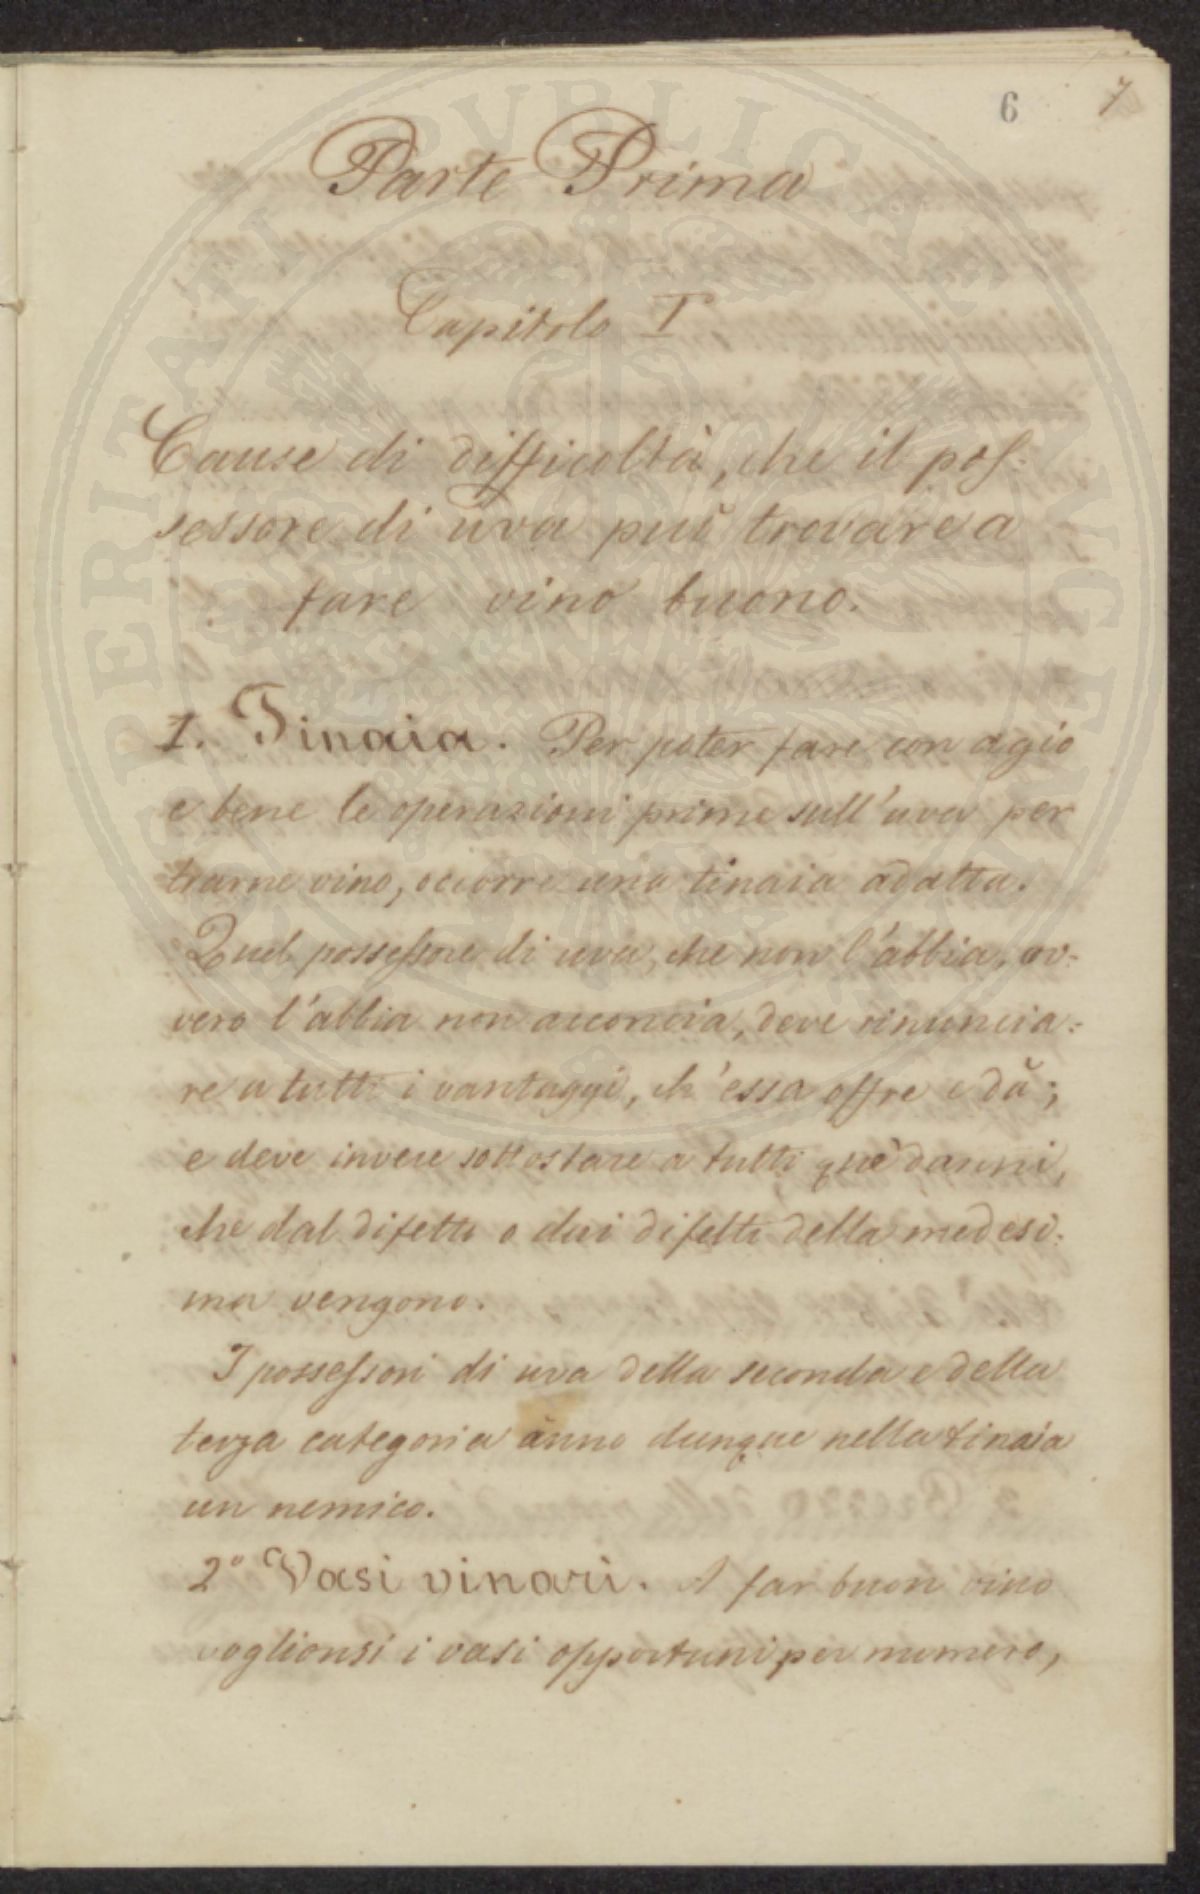 6 7
Parte Prima
Capitolo I
Cause di difficoltà, che il pos:
sessore di uva può trovare a
fare vino buono.
1. Tinaia. Per poter fare con agio
e bene le operazioni prime sull'uva per
trarne vino, occorre una tinaia adatta.
Quel possessore di uva, che non l'abbia, ov:
vero l'abbia non acconcia, deve rinuncia:
re a tutti i vantaggi, ch'essa offre e dà;
e deve invece sottostare a tutti que' danni,
che dal difetto o dai difetti della medesi:
ma vengono.
I possessori di uva della seconda e della
terza categoria ànno dunque nella tinaia
un nemico.
2º Vasi vinarii. A far buon vino
voglionsi i vasi opportuni per numero,
PROSPERITATI PVBLICAE AVGENDAE